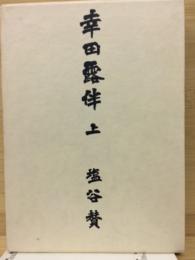 幸田露伴 上
塩谷賛